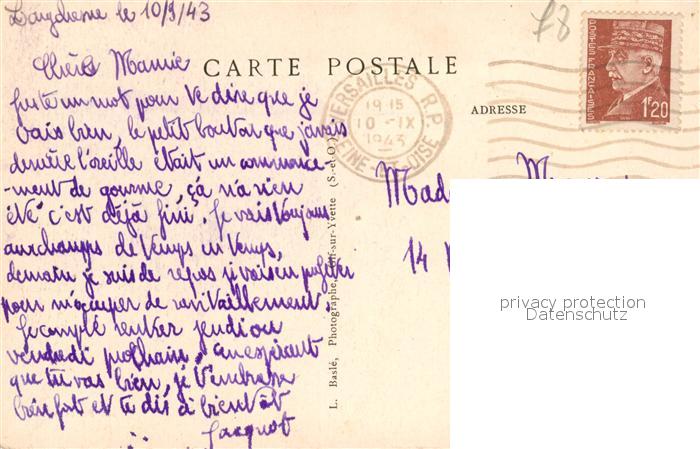 le 10/9/43
78
Chère Mamie
CARTE POSTALE
juste un mot pour te dire que je
vais bien, le petit bouton que j'avais
derrière l'oreille était un commence-
-ment de gourme, ça n'a rien
été c'est déjà fini. Je vais toujours
aux champs de temps en temps,
demain je suis de repos j'vais en profiter
pour m'occuper de ravitaillement.
Je compte rentrer jeudi ou
vendredi prochain, en espérant
que tu vas bien, je t'embrasse
bien fort et te dis à bientôt
Jacquot
VERSAILLES R.P.
19 15
10 -IX
1943
SEINE-ET-OISE
POSTES FRANÇAISES
1F20
ADRESSE
Mad
14
L. Baslé, Photographe, -sur-Yvette (S.-et-O.)
privacy protection
Datenschutz